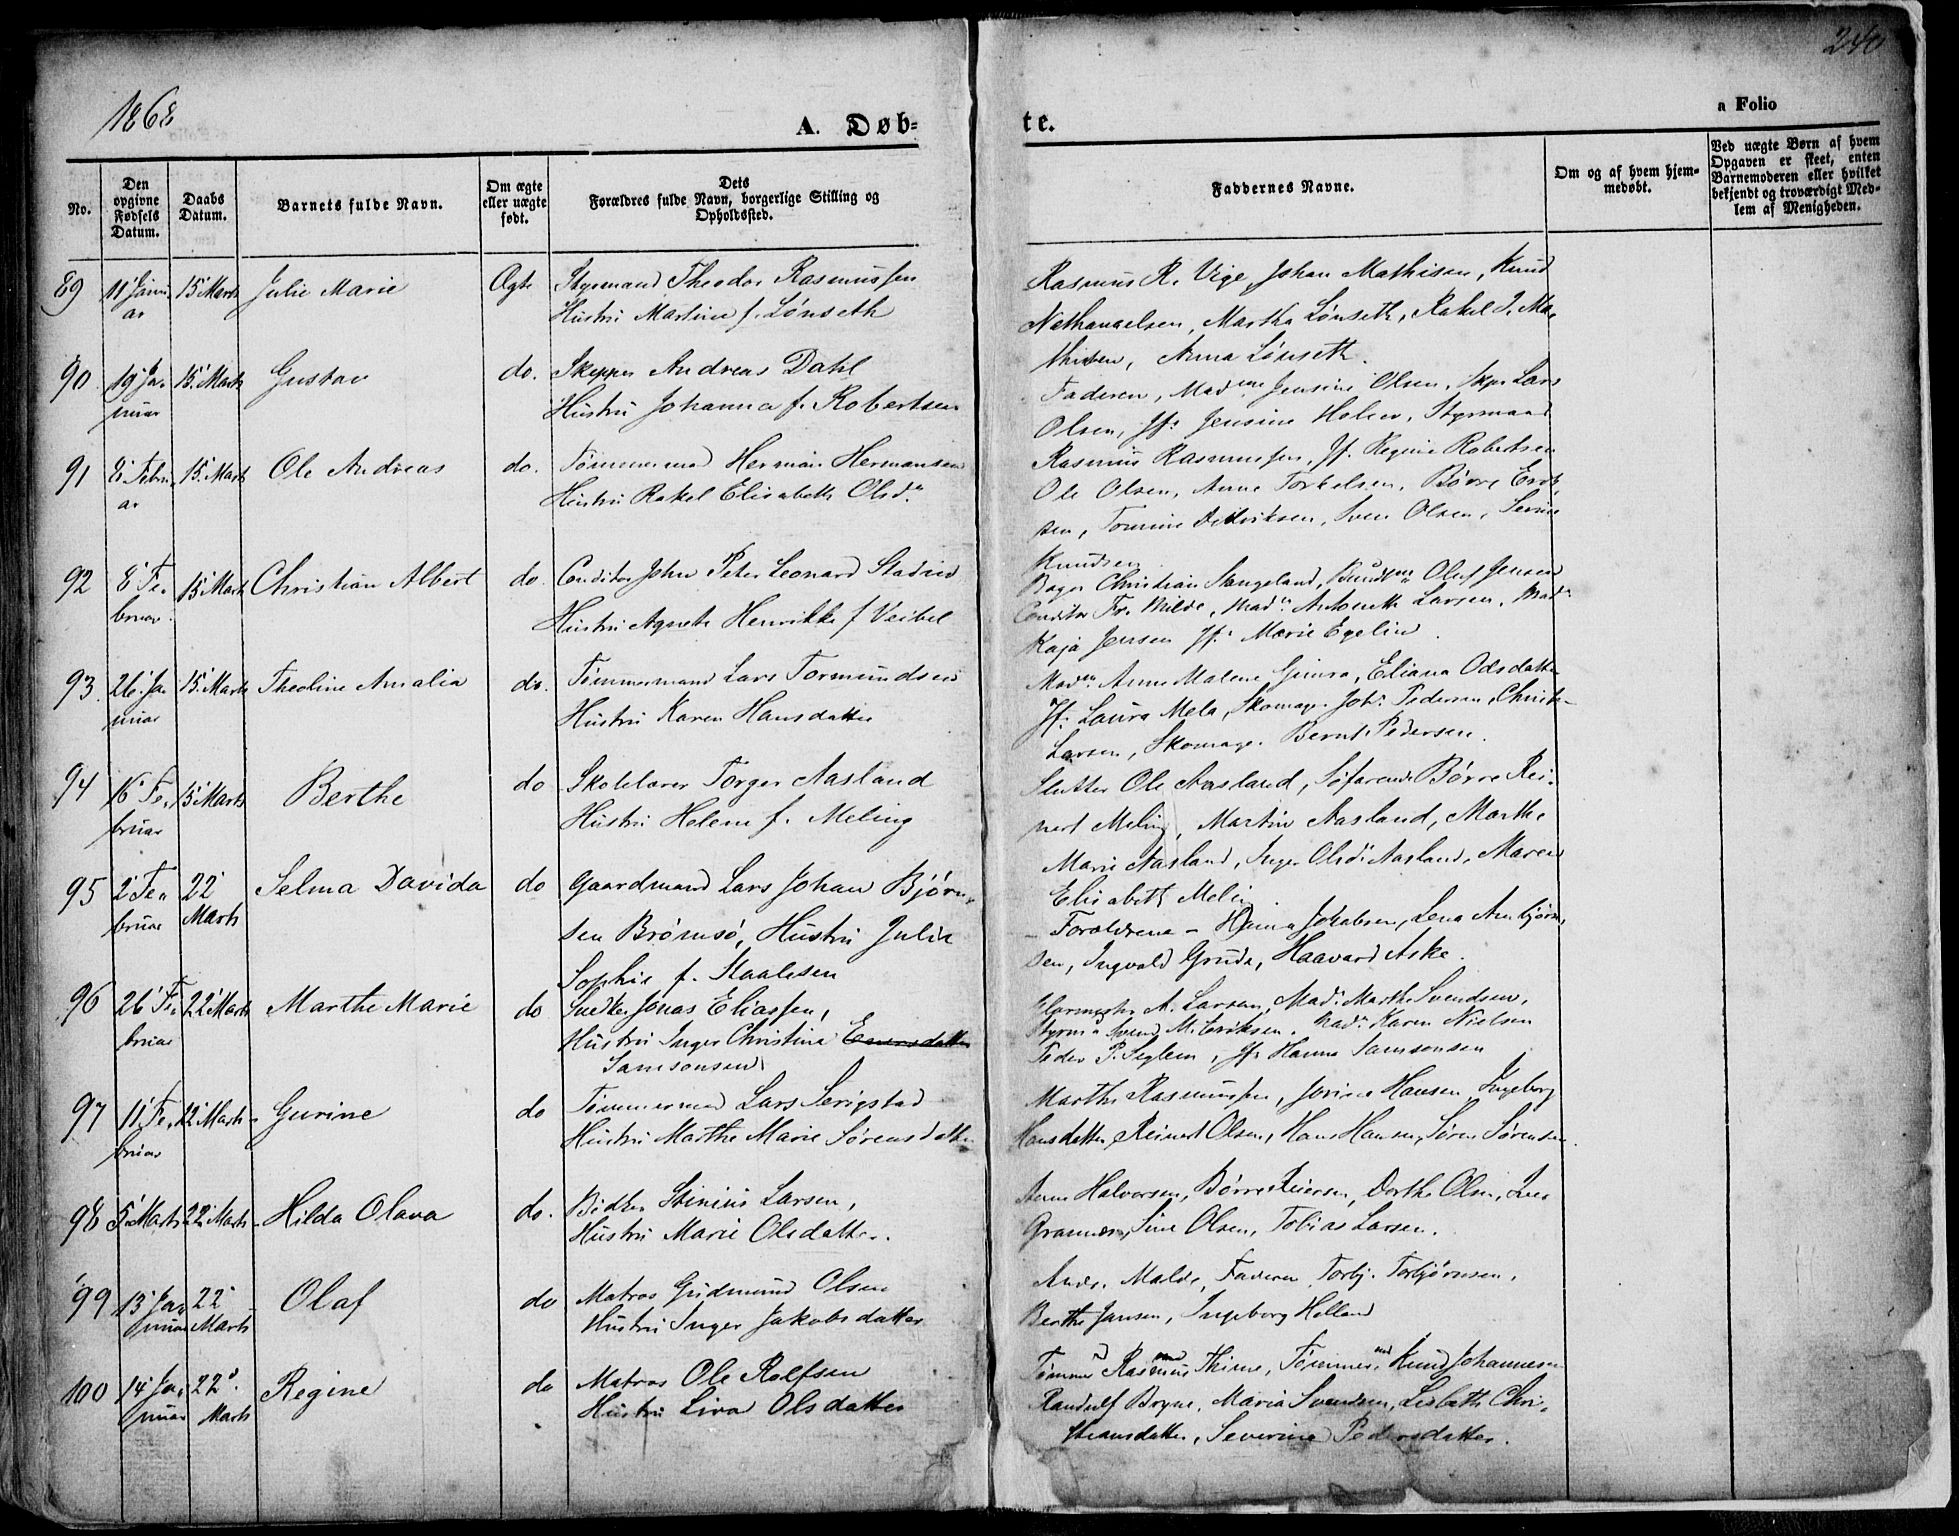 240
1868
A. Døb-
te.
a Folio
No.
Den opgivne Fødsels Datum.
Daabs Datum.
Barnets fulde Navn.
Om ægte eller uægte født.
Dets Forældres fulde Navn, borgerlige Stilling og Opholdssted.
Faddernes Navne.
Om og af hvem hjemmedøbt.
Ved uægte Børn af hvem Opgaven er skeet, enten Barnemoderen eller hvilket bekjendt og troværdigt Medlem af Menigheden.
89 11 Janu- 15 Marts Julie Marie Ægte Styrmand Theodor Rasmussen Rasmus R. Vige, Johan Mathisen, Knud
ar Hustru Martine f. Lönseth Nathanaelsen, Martha Lönseth, Rakel J. Ma-
thisen, Anna Lönseth.
90 19 Ja- 15 Marts Gustav do. Skipper Andreas Dahl Faderen, Mad. Jensine Olsen, Skpr Lars
nuar Hustru Johanna f. Robertsen Olsen, Jfr Jensine Styrmand
91 8 Febru- 15 Marts Ole Andreas do. Tømmermd Herman Hermansen Rasmus Rasmussen, Jf. Regine Robertsen
ar Hustru Rakel Elisabeth Olsd. Ole Olsen, Anne Torkelsen, Börre Erik-
sen, Tomine Didriksen, Sven Olsen, Serine
Knudsen
92 8 Fe- 15 Marts Christian Albert do. Conditor John Peter Leonard Bager Christian Stangeland, Oluf Jensen
bruar Hustru Agnete Henrikke f Veibel Conditor Fr. Milde, Mad. Antonette Larsen, Mad.
Kaja Jensen Jfr Marie Egelin
93 26 Ja- 15 Marts Theoline Amalia do. Tømmermand Lars Tormundsen Mad. Anne Malene Gimra, Eliana Odsdatter
nuar Hustru Karen Hansdatter Jfr Laura Mela, Skomag. Joh. Pedersen, Christ.
Larsen, Skomag. Bernt Pedersen.
94 16 Fe- 15 Marts Berthe do Skolelærer Torger Aasland Slutter Ole Aasland, Söfarende Börre Rei-
bruar Hustru Helene f. Meling nert Meling, Martin Aasland, Marthe
Marie Aasland, Inger Olsd. Aasland, Maren
Elisabeth Meling
95 2 Fe- 22 Marts Selma Davida do Gaardmand Lars Johan Bjørn- Forældrene – Hanna Jakobsen, Lena Arnbjørn-
bruar sen Brömsö, Hustru Julie sen, Ingvald Grude, Haavard Aske.
Sophie f. Staalesen
96 26 Fe- 22 Marts Marthe Marie do Snedker Jonas Eliassen, A. Larsen, Mad. Marthe Svendsen,
bruar Hustru Inger Christine Styrmd Svend M. Eriksen. Mad. Karen Nielsen
Samsonsen Peder P. Seglem, Jfr Hanna Samsonsen
97 11 Fe- 22 Marts Gurine do Tømmermd Lars Serigstad Marthe Rasmussen, Jorina Hansen, Ingeborg
bruar Hustru Marthe Marie Sørensdatter Hansdatter, Reinert Olsen, Hans Hansen, Søren Sørensen.
98 5 Marts 22 Marts Hilda Olava do. Bødker Stinius Larsen, Anne Halvorsen, Börre Reiersen, Dorthe Olsen,
Hustru Marie Olsdatter. Sine Olsen, Tobias Larsen.
99 13 Ja- 22 Olaf do Matros Gudmund Olsen Andr. Malde, Faderen, Torbj. Torbjørnsen,
nuar Marts Hustru Inger Jakobsdatter Berthe Jansen, Ingeborg Helland
100 14 Ja- 22 Regine do Matros Ole Rolfsen Tømmermd Rasmus Thime, Tømmermd Knud Johannesen
nuar Marts Hustru Liva Olsdatter Randulf Bryne, Maria Svendsen, Lisbeth Chri-
stiansdatter, Severine Pedersdatter.